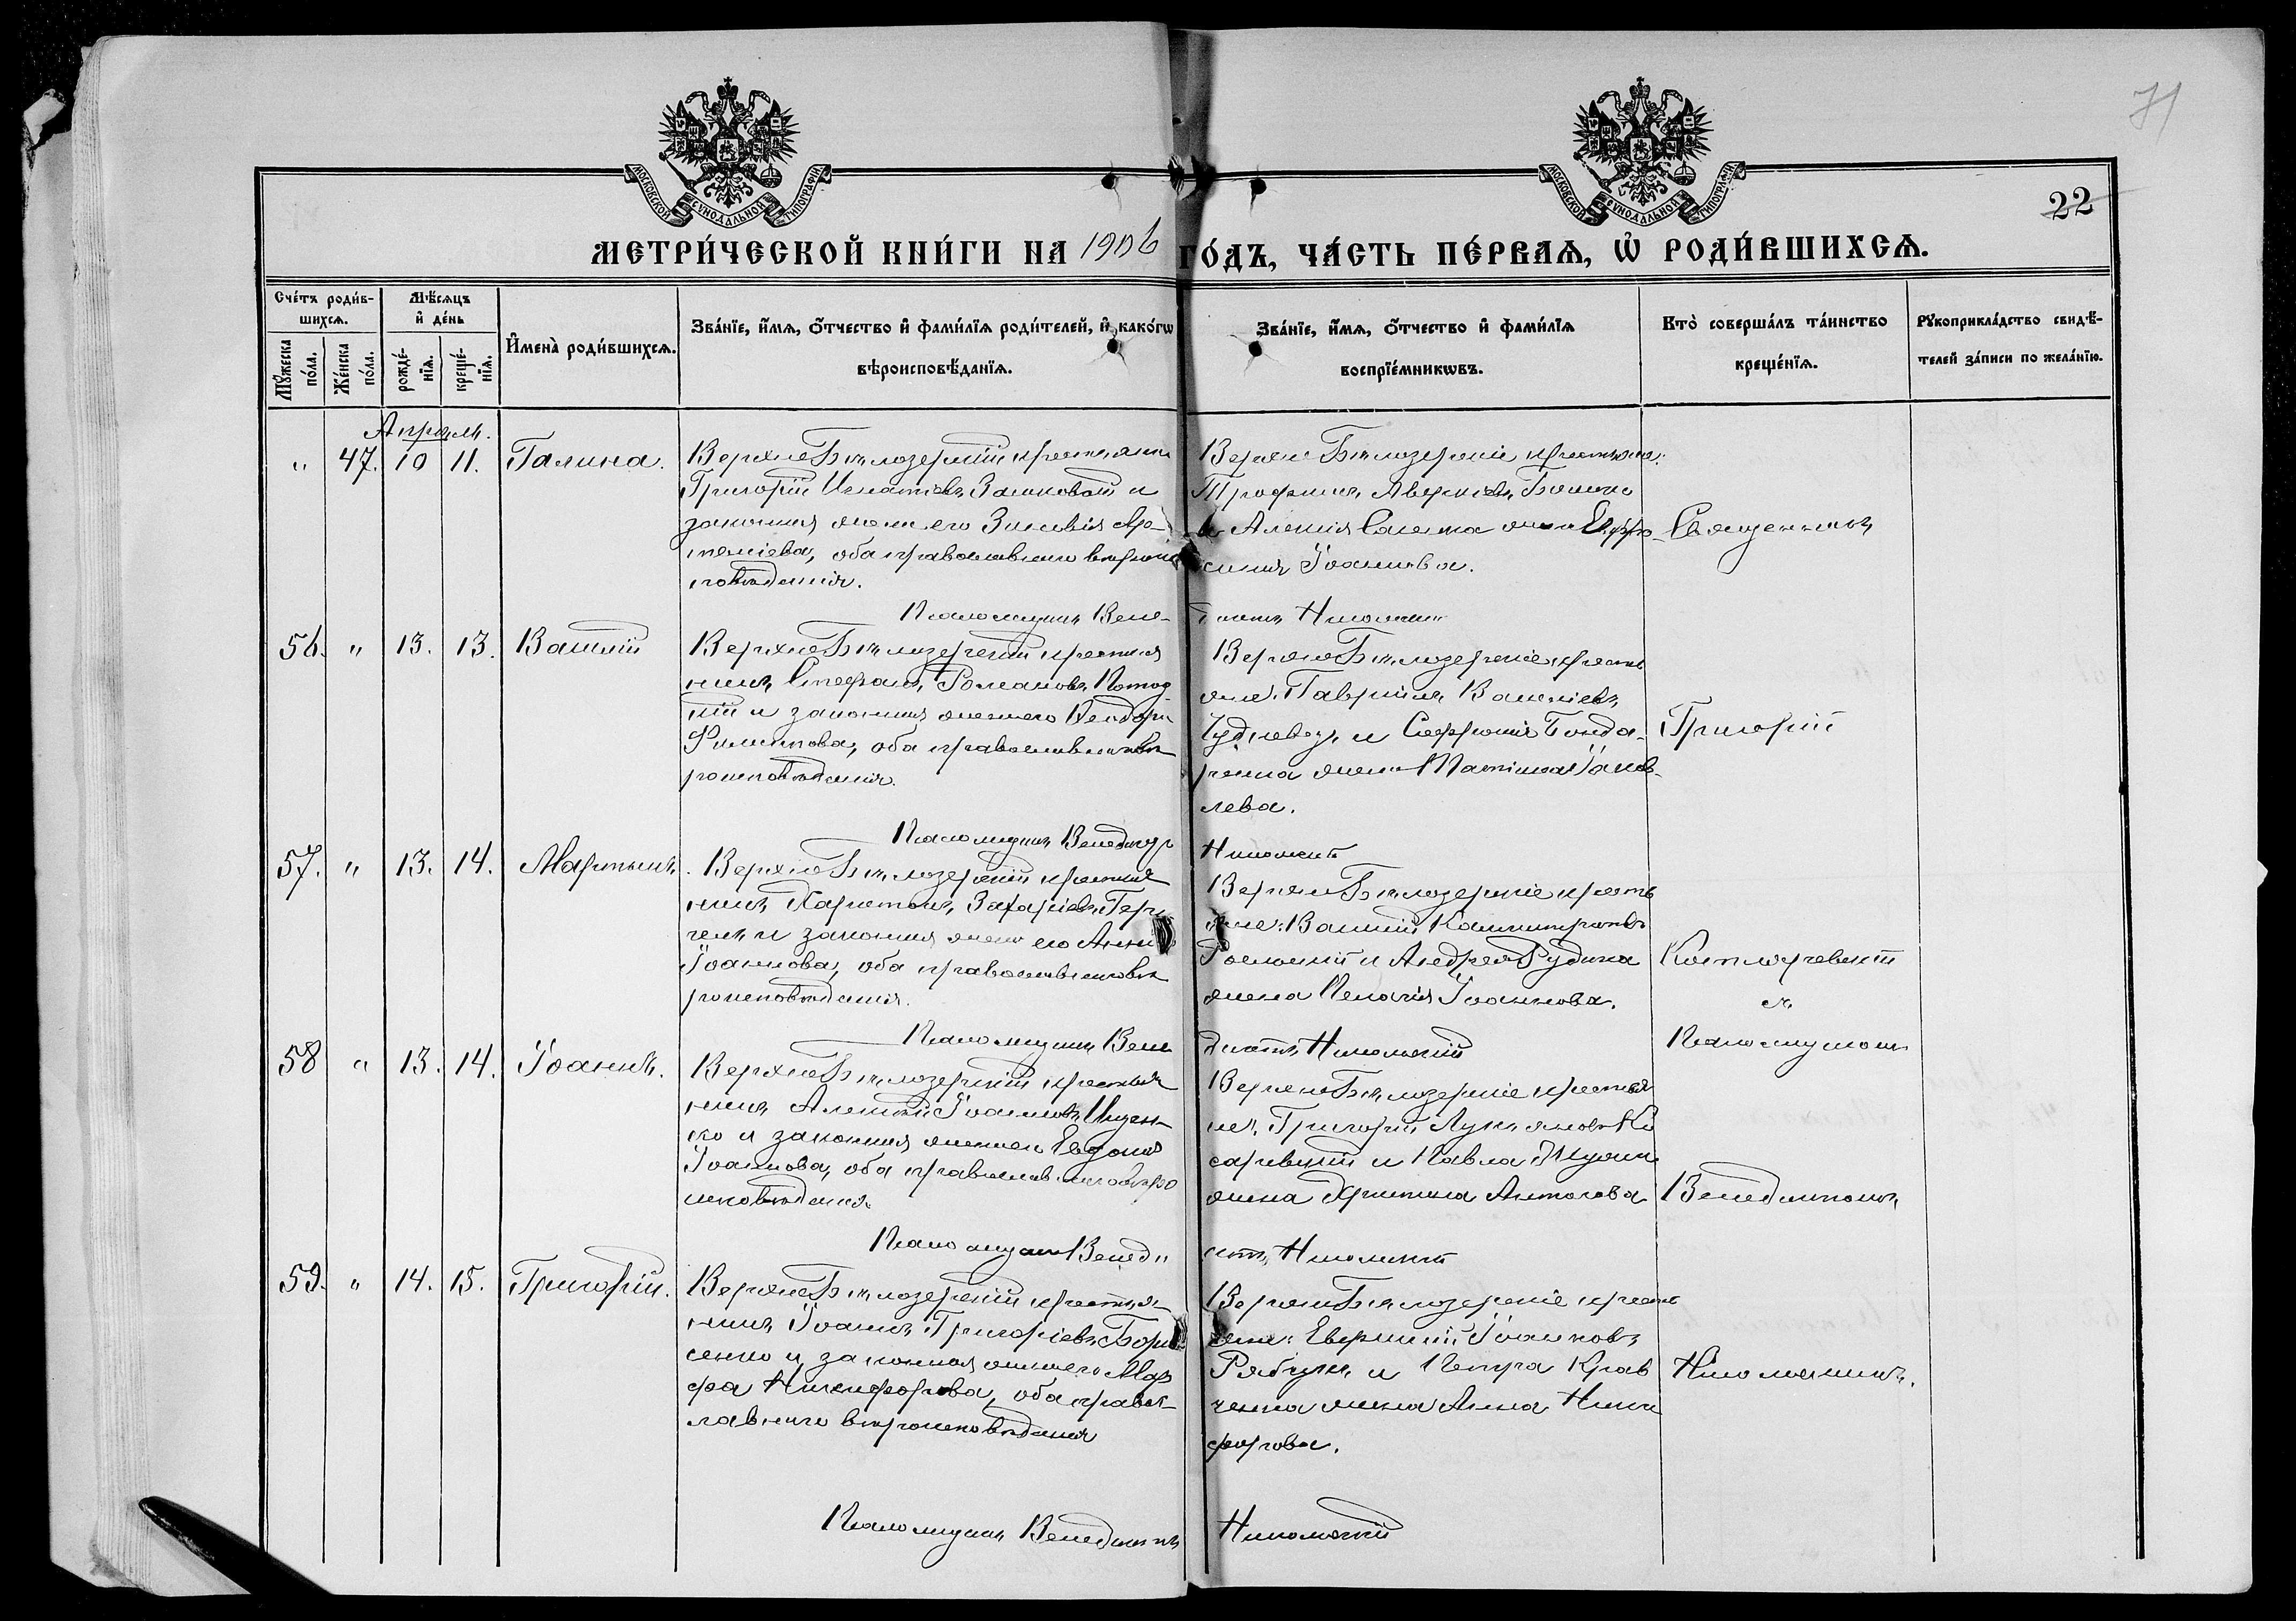 71
МОСКОВСКОЙ СУНОДАЛЬНОЙ ТИПОГРАФІИ
МОСКОВСКОЙ СУНОДАЛЬНОЙ ТИПОГРАФІИ
22
МЕТРИ́ЧЕСКОЙ КНИ́ГИ НА 1906 ГО́ДЪ, ЧА́СТЬ ПЕ́РВАЯ, Ѡ҆ РОДИ́ВШИХСЯ.
Сче́тъ роди́в-
шихся.
Мѣ́сяцъ
и҆ де́нь
Мꙋ́жеска по́ла.
Же́нска по́ла.
рожде́-
нїя.
креще́-
нїя.
И҆мена̀ роди́вшихся.
Зва́нїе, и҆́мя, ѻ҆́тчество и҆ фами́лїя роди́телей, и҆ како́гѡ
вѣроисповѣ́данїя.
Зва́нїе, и҆́мя, ѻ҆́тчество и҆ фами́лїя
воспрїе́мникѡвъ.
Кто̀ соверша́лъ та́инство
креще́нїя.
Рꙋкоприкла́дство свидѣ́-
телей за́писи по жела́нїю.
Апрель.
" 47. 10 11. Галина.
ВерхнеБѣлозерскій крестьянинъ
Григорій Игнатіевъ и
законная жена его Зиновія Ар-
теміева, оба православнаго вѣроис
повѣданія.
ВерхнеБѣлозерскіе крестьяне:
Трофимъ Аверкіевъ
и Алексія жена Евфро-
синія Іоаннова.
Священникъ
Псаломщикъ Вене-
диктъ Никольскій
56. " 13. 13. Василій
ВерхнеБѣлозерскій крестья
нинъ Стефанъ Романовъ
и законная жена его Ѳеодора
Филиппова, оба православнаго вѣ
роисповѣданія.
ВерхнеБѣлозерскіе кресть
яне: Гавріилъ Василіевъ
и Софронія Бонда-
ренка жена Іаков-
лева.
Григорій
Псаломщикъ Венедиктъ
Никольскій
57. " 13. 14. Мартынъ.
ВерхнеБѣлозерскій крестья
нинъ Харитонъ Захаріевъ
и законная жена его Анна
Іоаннова, оба православнаго вѣ
роисповѣданія.
ВерхнеБѣлозерскіе кресть
яне: Василій
и Андрея Рудика
жена Пелагія Іоаннова.
и
Псаломщикомъ
Псаломщикъ Вене
диктъ Никольскій
58 " 13. 14. Іоаннъ.
ВерхнеБѣлозерскій крестья
нинъ Алексій Іоанновъ Ищен-
ко и законная жена его Евдокія
Іоаннова, оба православнаго вѣро
исповѣданія.
ВерхнеБѣлозерскіе крестья
не: Григорій Лукьяновъ
и Павла
жена Христина Антонова
Венедиктомъ
Псаломщикъ Венеди
ктъ Никольскій
59. " 14. 15. Григорій.
ВерхнеБѣлозерскій крестья-
нинъ Іоаннъ Григоріевъ Бори
сенко и законная жена его Мар
фа Никифорова, оба правос-
лавнаго вѣроисповѣданія
ВерхнеБѣлозерскіе кресть
яне: Іоанновъ
Рябчунъ и Петра Крав
ченка жена Анна Ники
форова.
Никольскимъ.
Псаломщикъ Венедиктъ Никольскій